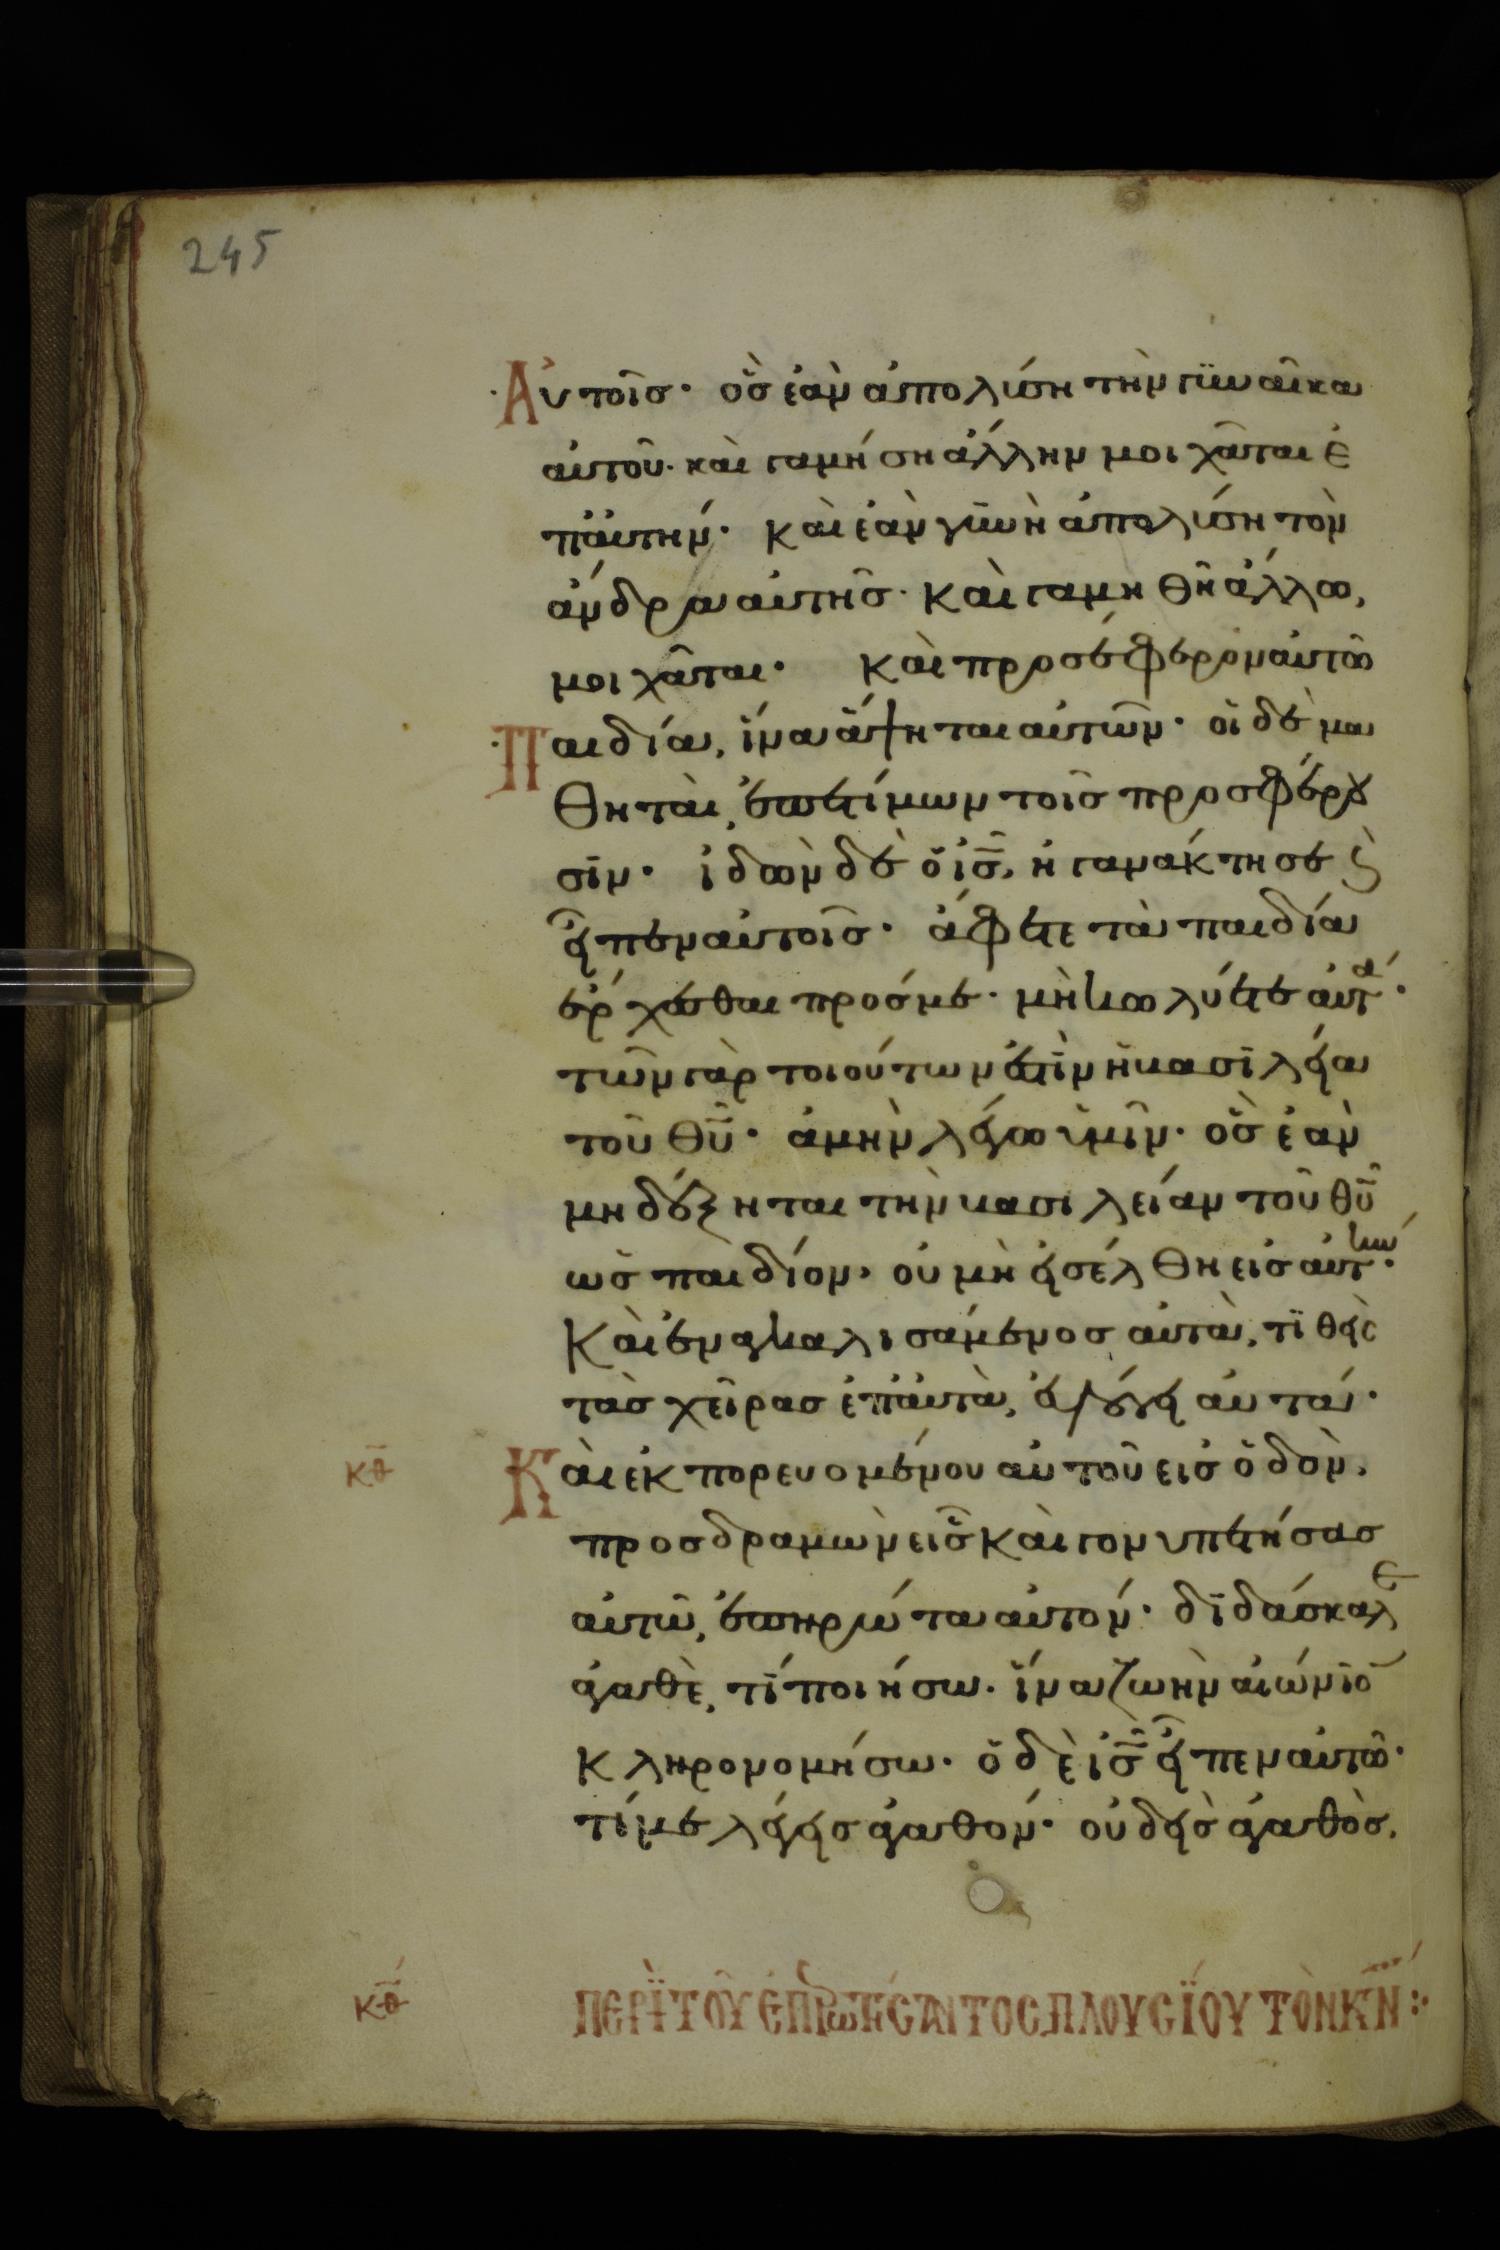 245
Αὐτοῖσ· ὃσ ἐὰν ἀπολύση τὴν γυναῖκα
αὐτοῦ· καὶ γαμήση ἄλλην μοιχᾶται ἐ
π' αὐτήν· Καὶ ἐὰν γυνὴ ἀπολύση τὸν
ἄνδρα αὐτῆσ· Καὶ γαμηθῆ ἄλλω,
μοιχᾶται· Καὶ προσέφερον αὐτῶ
Παιδία, ἵνα ἅψηται αὐτῶν· οἱ δὲ μα
θηταὶ, ἐπετίμων τοῖσ προσφέρου
σιν· ἰδὼν δὲ ὁ ισ̅, ἠγανάκτησε ϛ̀
εἶπεν αὐτοῖσ· ἄφετε τὰ παιδία
ἔρχεσθαι πρόσ με· μὴ κωλύετε αὐτά·
τῶν γὰρ τοιούτων ἐστὶν ἡ βασιλεία
τοῦ θυ̅· ἀμὴν λέγω ὑμῖν· ὃσ ἐὰν
μὴ δέξηται τὴν βασιλείαν τοῦ θυ̅
ὡσ παιδίον, οὐ μὴ εἰσέλθη εἰσ αὐτήν·
Καὶ ἐναγκαλισάμενοσ αὐτὰ, τιθεὶσ
τὰσ χεῖρασ ἐπ' αὐτὰ, εὐλόγει αὐτά·
κθ̅ Καὶ ἐκπορευομένου αὐτοῦ εἰσ ὁδὸν,
προσδραμὼν εἷσ καὶ γονυπετήσασ
αὐτῶ, ἐπηρώτα αὐτόν· διδάσκαλε
ἀγαθὲ, τί ποιήσω· ἵνα ζωὴν αἰώνιο
κληρονομήσω· ὁ δὲ ισ̅ εἶπεν αὐτῶ·
τί με λέγεισ ἀγαθόν· οὐδεὶσ ἀγαθὸσ,
κθ̅ ΠΕΡῚ ΤΟΥ͂ ἘΠΡΩΤΉCΑΝΤΟC ΠΛΟΥCΊΟΥ ΤῸΝ ΚΝ̅:·